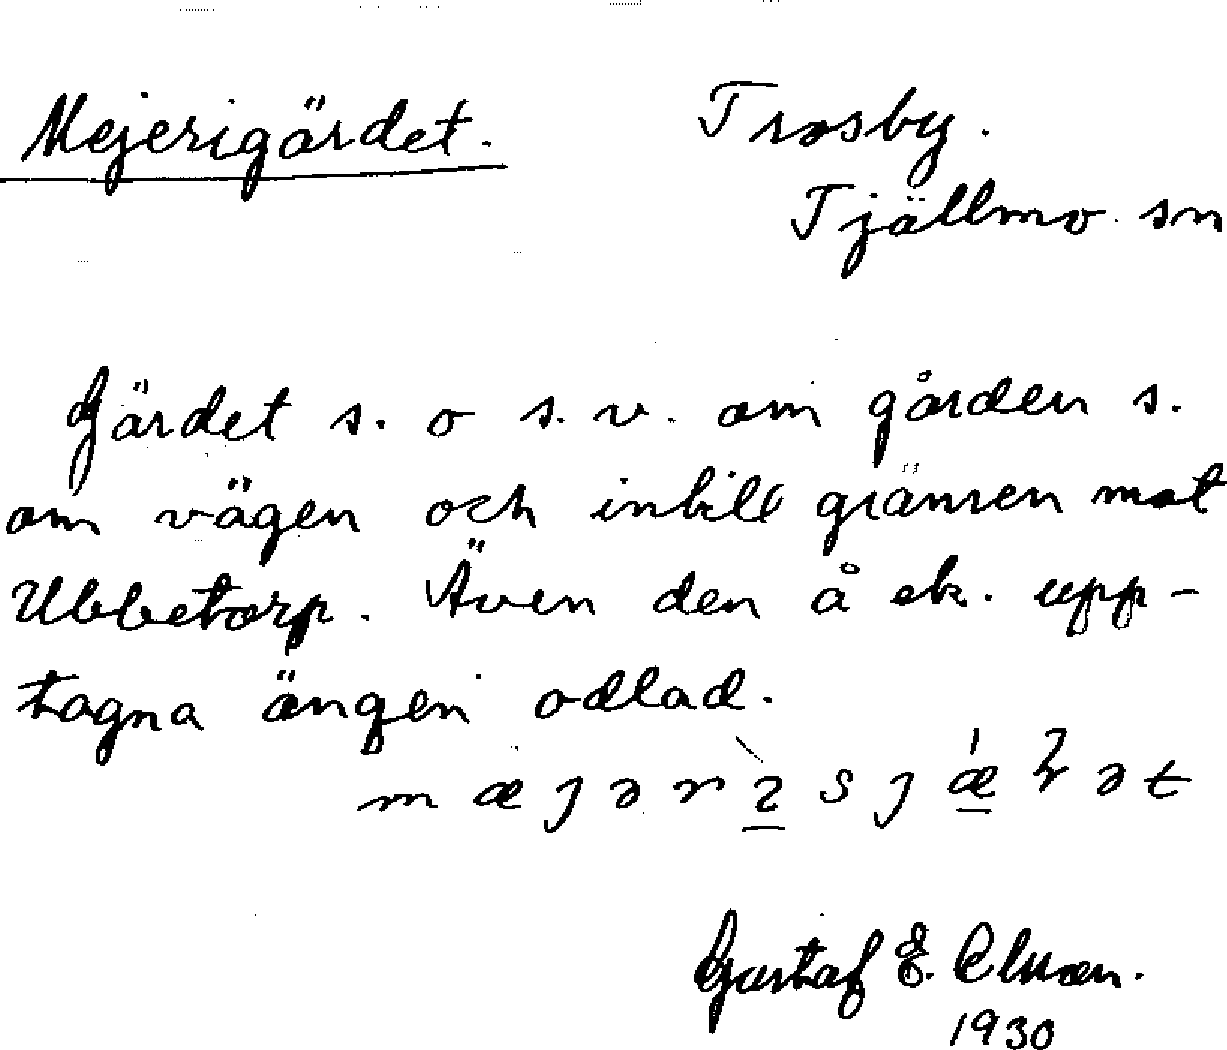 Mejerigärdet.
Trosby.
Tjällmo sn
Gärdet s. o s. v. om gården s.
om vägen och intill gränsen mot
Ubbetorp. Även den å ek. upp-
tagna ängen odlad.
Gustaf E.
1930